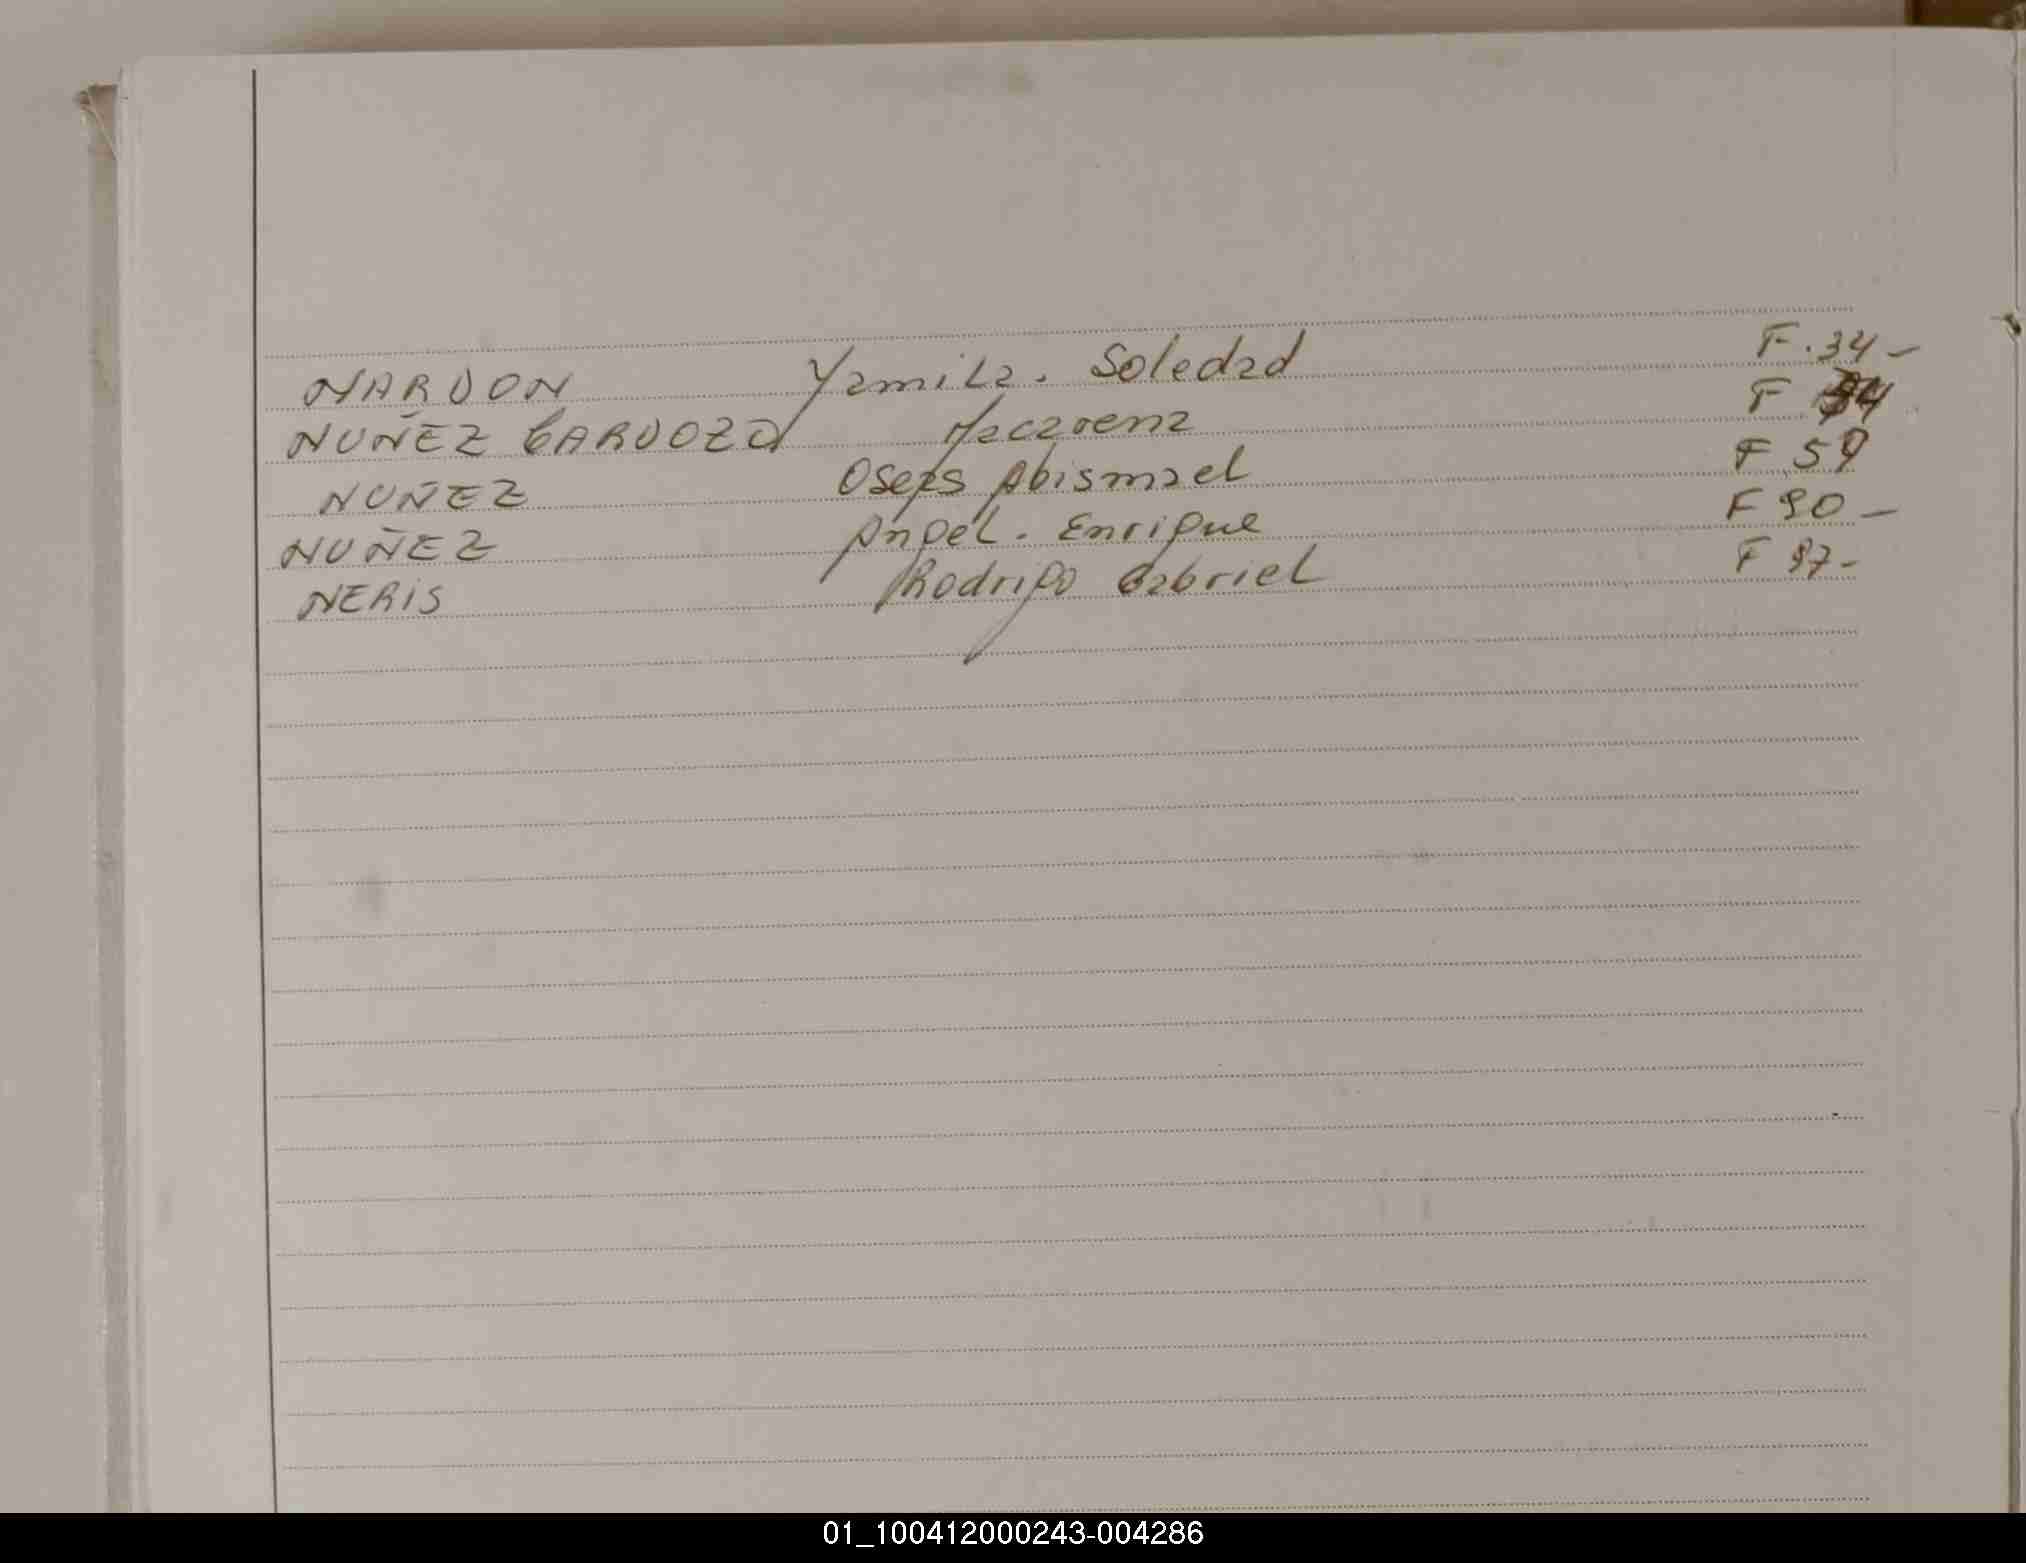 NARDON Yamila. Soledad F. 34 -
NUÑEZ CARDOZO Macarena F
NUÑEZ Oseas Abismael F 59
NUÑEZ Angel. Enrique F 90 -
NERIS Rodrigo Gabriel F 97-
01_100412000243-004286